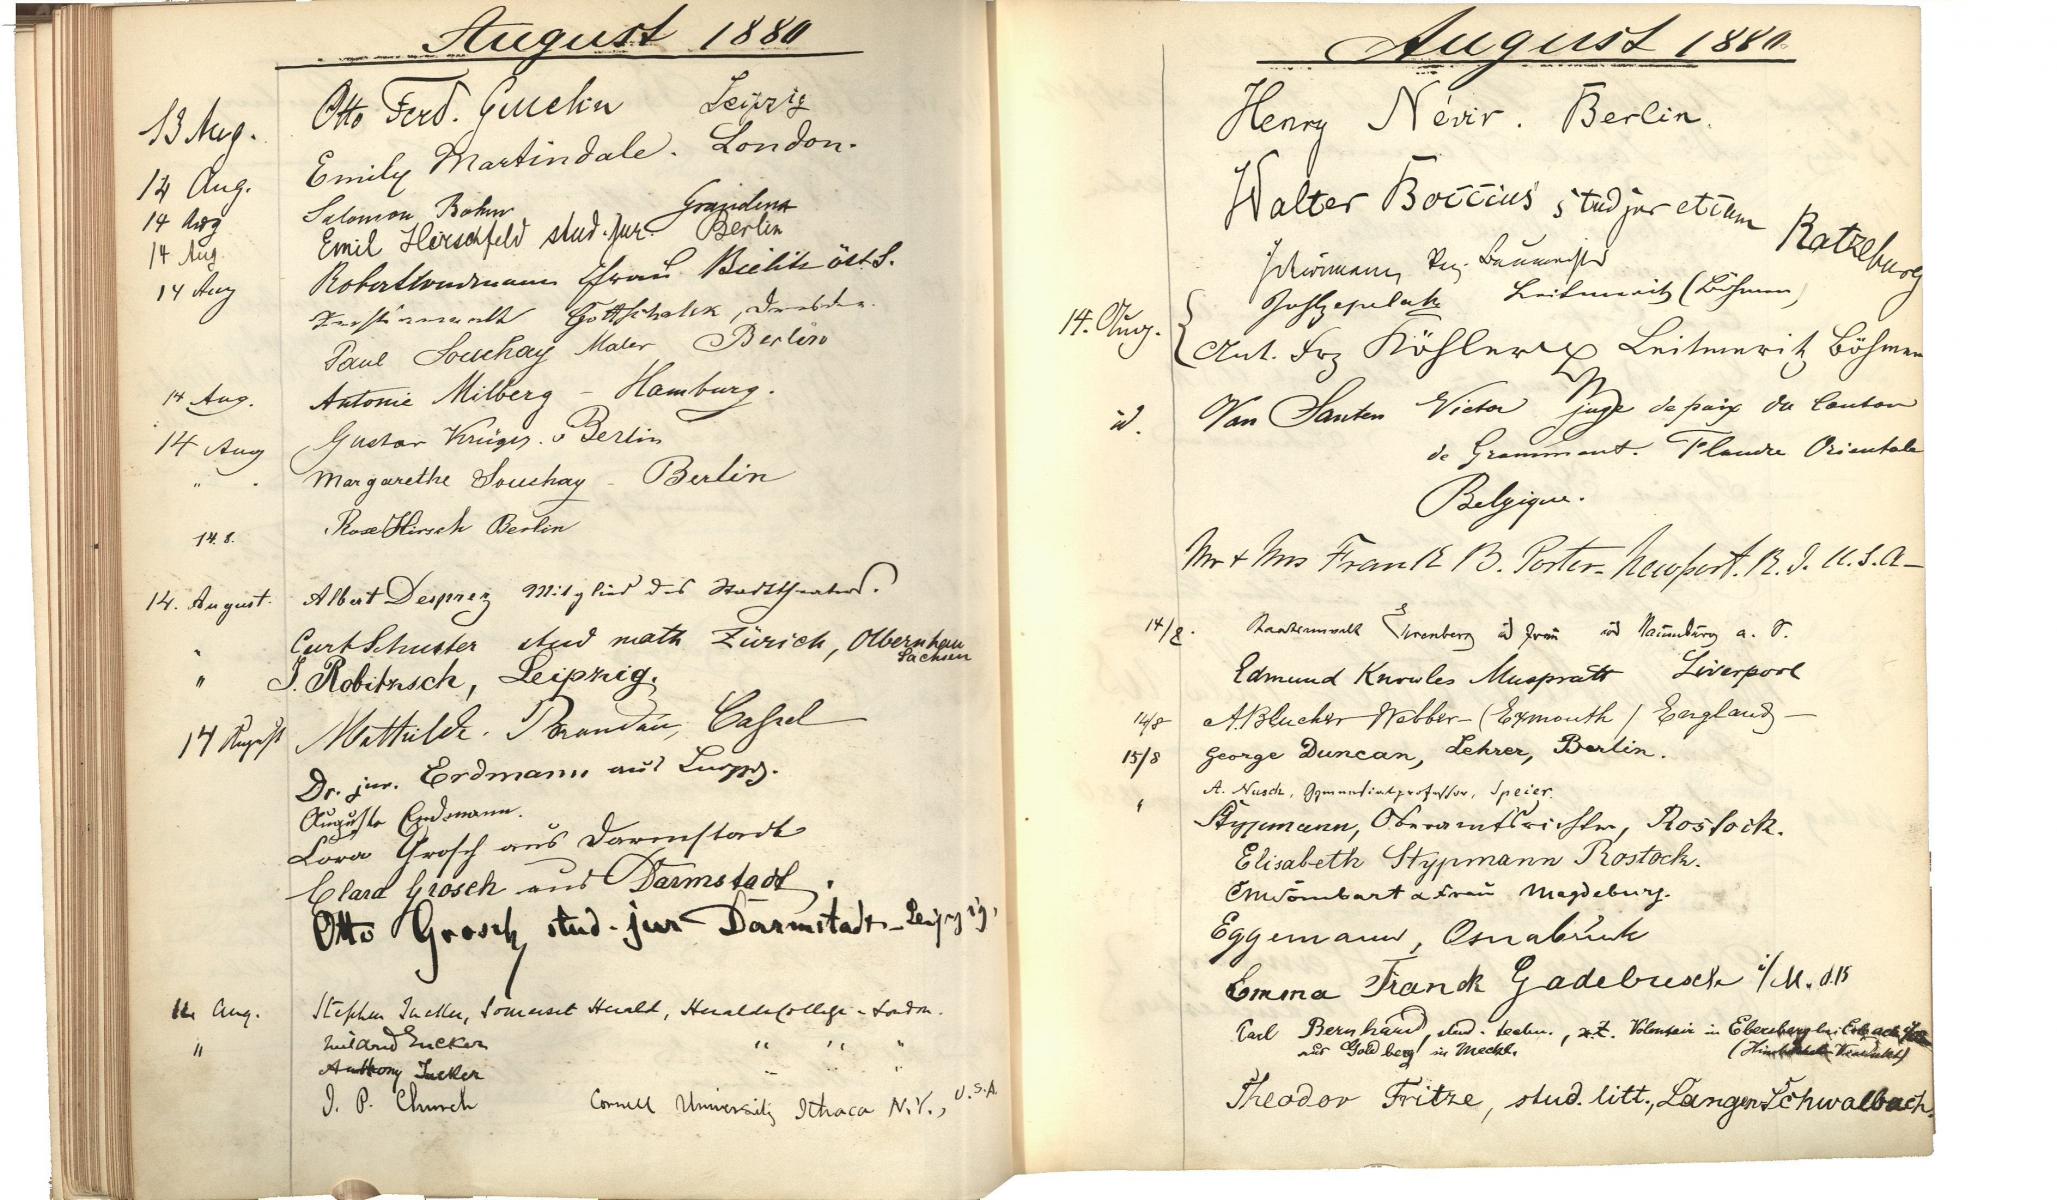 August 1880
13 Aug. Otto Ferd. Leipzig
14 Aug. Emily Martindale. London.
14 Aug Salomon Graudenz
14 Aug. Emil Hirschfeld stud. jur. Berlin
14 Aug Bielitz öst. S.
Gottschalck, Dresden.
Paul Souchay Maler Berlin
14 Aug. Antonie Milberg – Hamburg.
14 Aug Gustav Krüger. Berlin
" . Margarethe Souchay – Berlin
14.8. Rose Hirsch Berlin
14. August. Albert Desprez Mitglied des Stadttheaters.
" Curt Schuster stud math Zürich, Olbernhau
Sachsen
" J. Robitzsch, Leipzig.
14 August Mathilde. Brandau, Cassel
Dr. jur. Erdmann aus
Auguste Erdmann.
Lora Grosch aus Darmstadt
Clara Grosch aus Darmstadt.
Otto Grosch stud. jur Darmstadt – Leipzig.
Aug. Stephen Tucker, Somerset Herald, Heralds College – London.
" Mildred Tucker " " "
Anthony Tucker " "
J. P. Church Cornell University Ithaca N.Y., U.S.A.
August 1880
Henry Névir. Berlin.
Walter Boccius stud jur et cam Ratzeburg
Reg. Baumeister
Leitmeritz (Böhmen)
14. Aug. Ant. Frz Köhler Leitmeritz Böhmen
id. Van Santen Victor juge de paix du Canton
de Grammont. Flandre Orientale
Belgique.
Mr + Mrs Frank B. Porter – Newport. R. I. U.S.A –
14/8. Staatsanwalt Ehrenberg u Frau aus Naumburg a. S.
Edmund Knowles Muspratt Liverpool
14/8 A. Blucher Webber – (Exmouth / England) –
15/8 George Duncan, Lehrer, Berlin.
" A. Nusch, Gymnasialprofessor, Speier.
Stypmann, Oberamtsrichter, Rostock.
Elisabeth Stypmann Rostock.
Frau Magdeburg.
Eggemann, Osnabrück
Emma Franck Gadebusch i/M.
Carl Bernhard, stud. techn., z. Z. Volontair in Ebersberg bei
aus Goldberg in Meckl.
Theodor Fritze, stud. litt., Langen-Schwalbach.